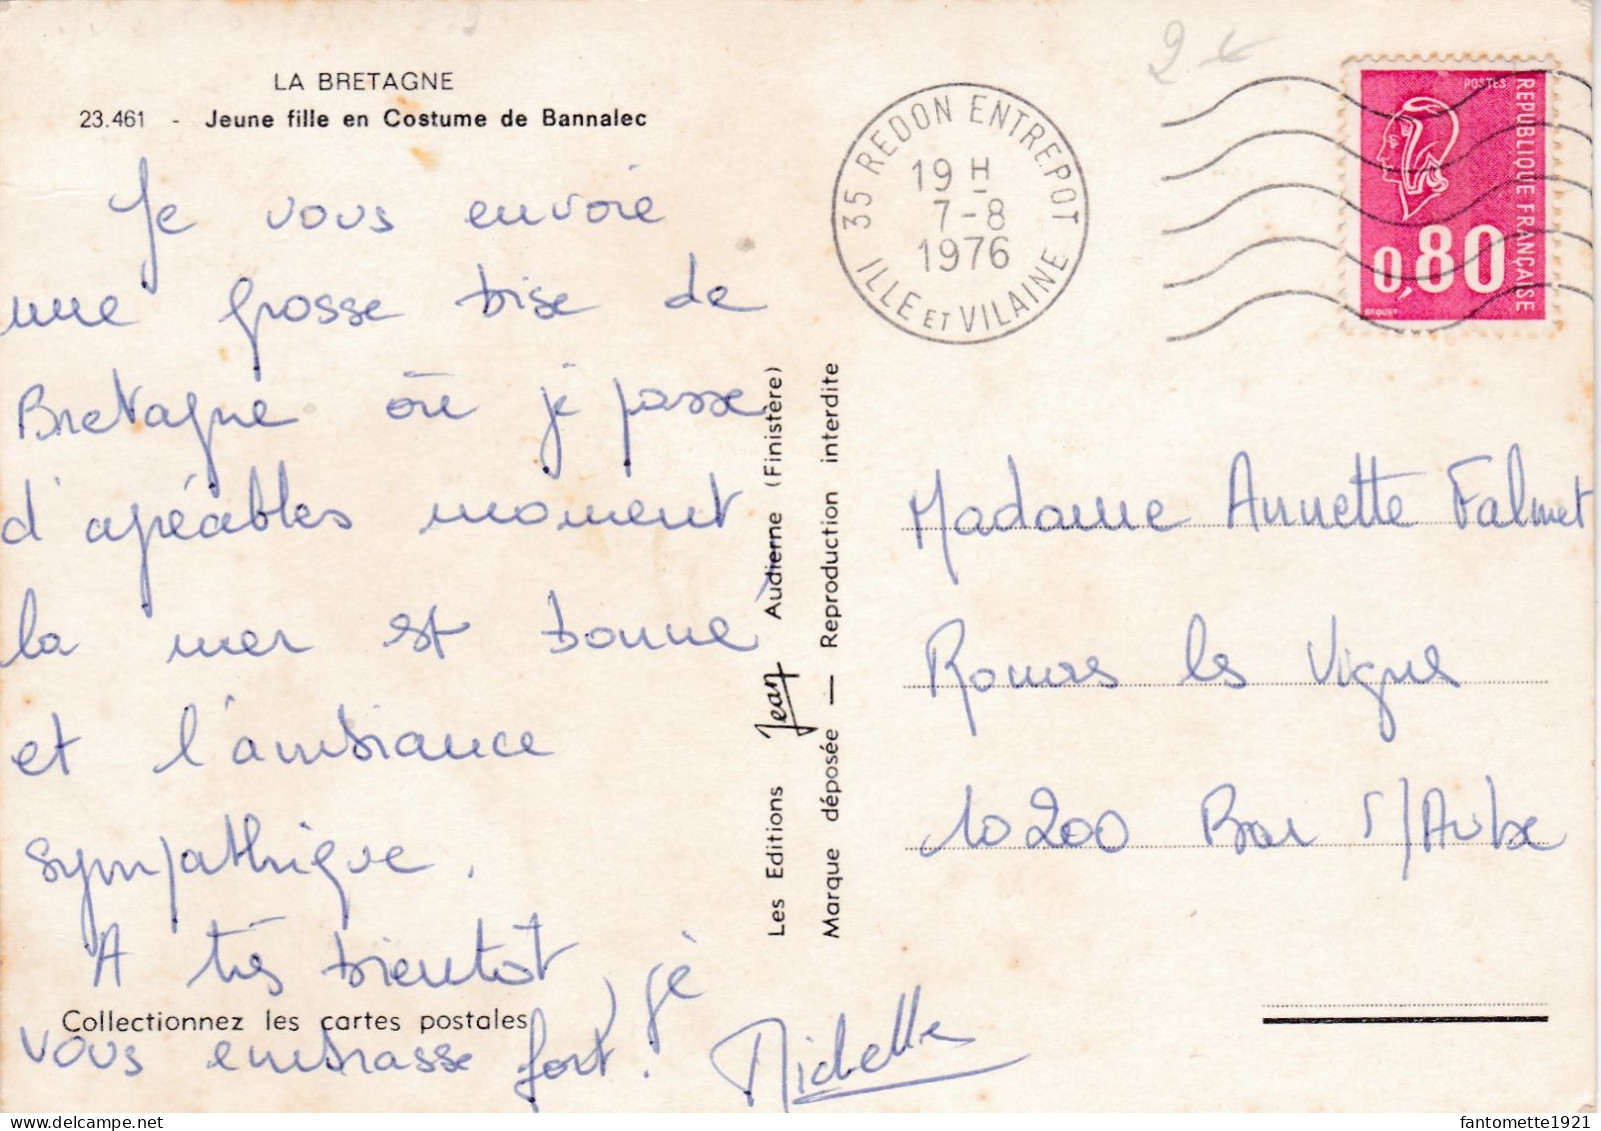 LA BRETAGNE
23.461 - Jeune fille en Costume de Bannalec
Je vous envoie
une grosse bise de
Bretagne où je passe
d'agréables moment
la mer est bonne
et l'ambiance
sympathique.
A très bientôt, je
Collectionnez les cartes postales
vous embrasse fort.
Michelle
Les Editions Jean Audierne (Finistère)
Marque déposée — Reproduction interdite
35 REDON ENTREPOT
19 H
7-8
1976
ILLE ET VILAINE
2 €
POSTES
REPUBLIQUE FRANÇAISE
0,80
Madame Annette Falmet
les Vignes
10200 Bar s/Aube
fantomette1921